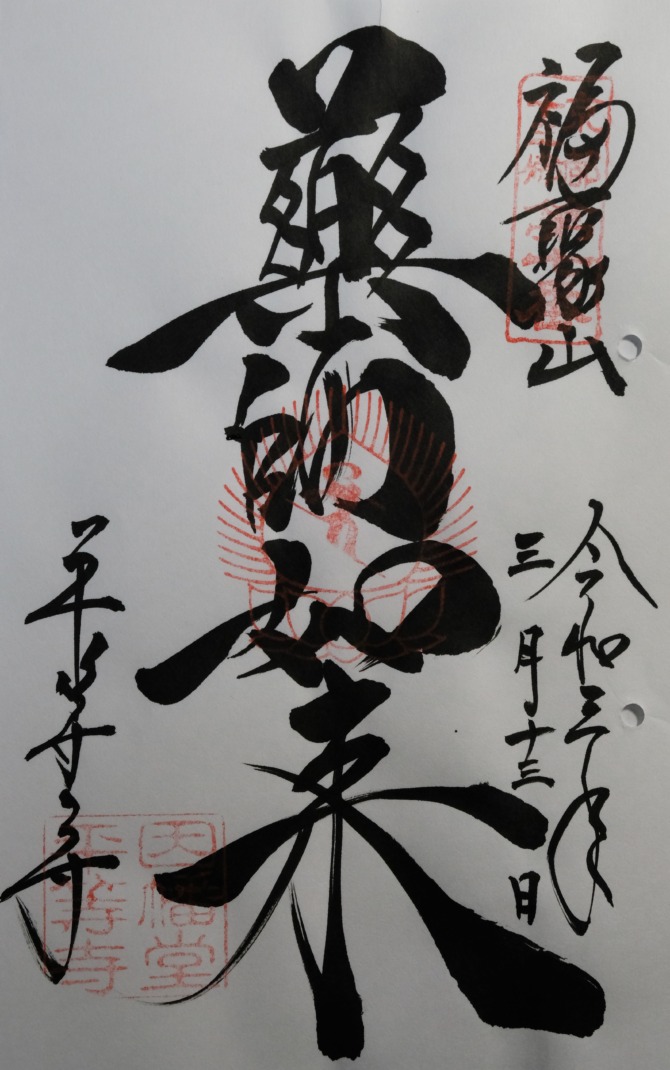 福聚山
令和三年
三月十三日
藥師如来
平等寺
因幡堂
平等寺